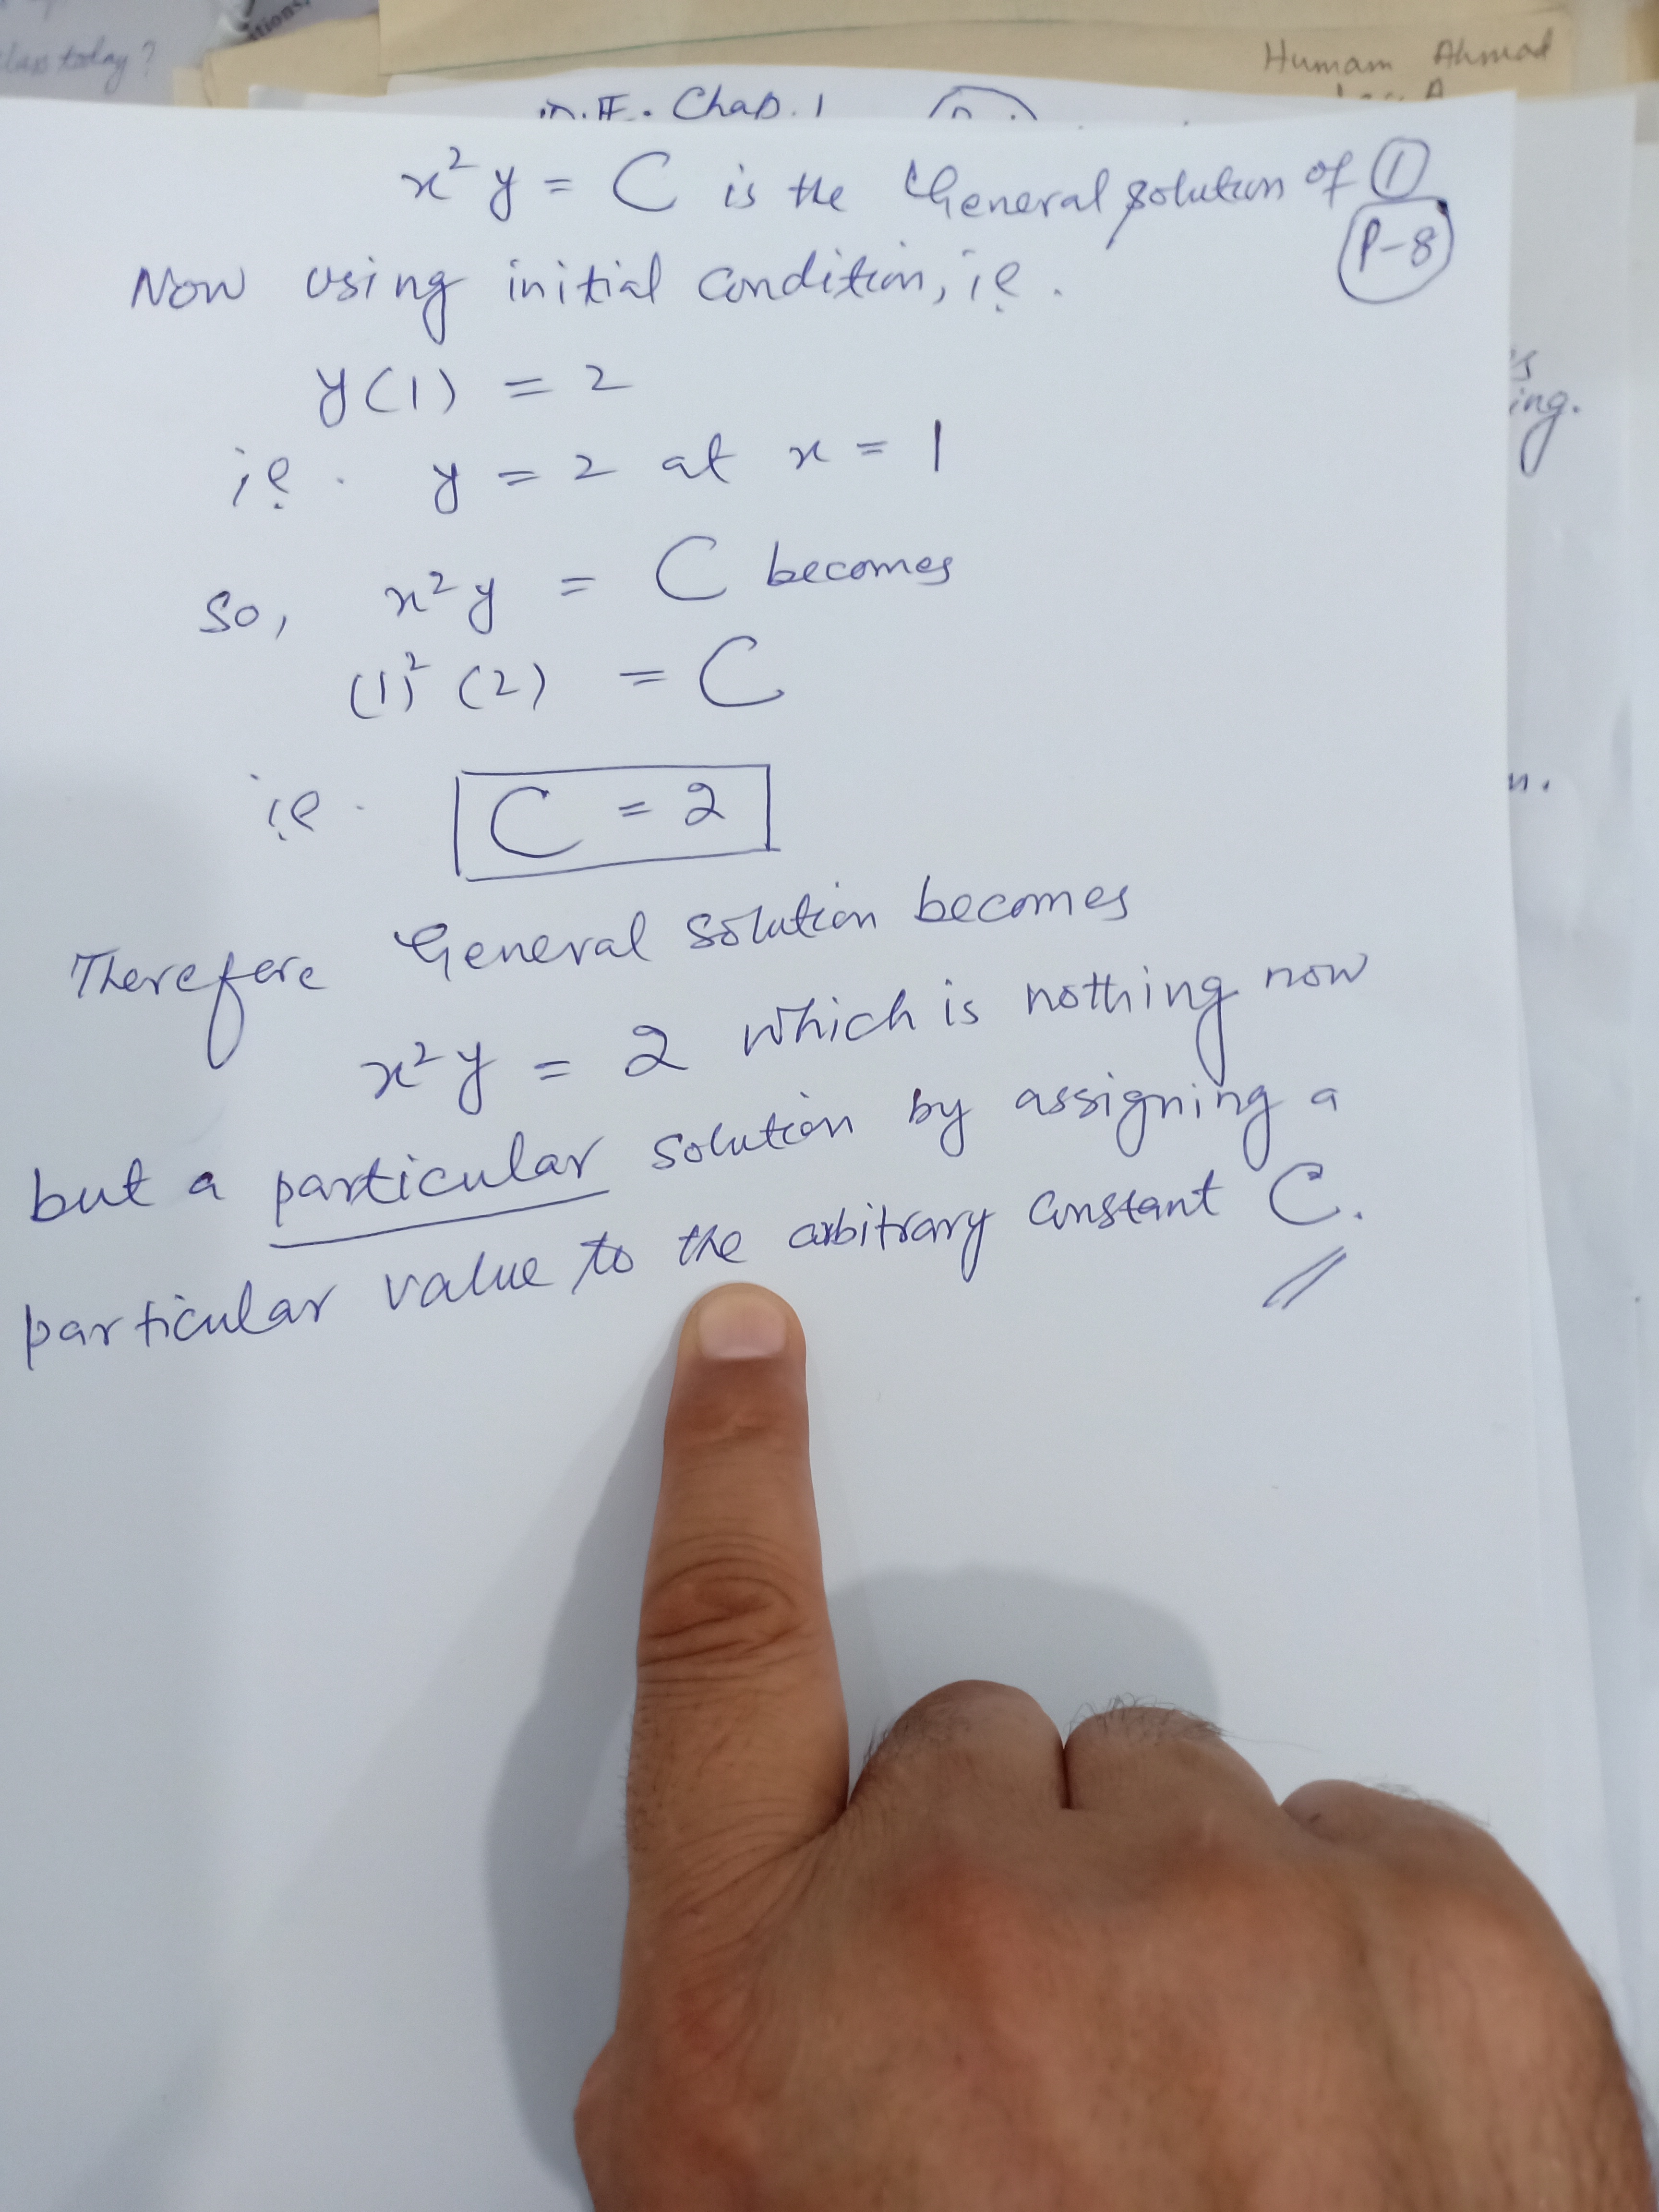 class today?
Humam Ahmad
Chap. 1
x² y = C is the General solution of ①
P-8
Now using initial condition, ie.
y(1) = 2
ie. y = 2 at x = 1
So, x² y = C becomes
(1)² (2) = C
ie. C = 2
Therefore General solution becomes
x² y = 2 which is nothing now
but a particular solution by assigning a
particular value to the arbitrary constant C.
ing.